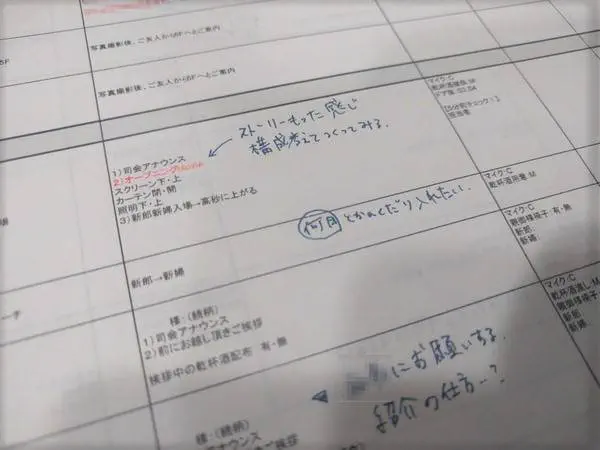 写真撮影後、ご友人から8Fへとご案内
5F
写真撮影後、ご友人から8Fへとご案内
マイク:C
ストーリーもった感じ
構成考えてつくってみる。
1)司会アナウンス
2)オープニングMovie
スクリーン下・上
カーテン閉・開
照明下・上
3)新郎新婦入場→高砂に上がる
何月とかのくだり入れたい。
マイク:C
乾杯酒用意:M
新郎→新婦
マイク:C
親御様椅子:有・無
新郎:
新婦:
ーチ
様:(続柄)
1)司会アナウンス
2)前にお越し頂きご挨拶
挨拶中の乾杯酒配布 有・無
マイク:C
親御様椅子:有・無
新郎:
新婦:
にお願いする。
紹介の仕方…?
様:(続柄)
アナウンス